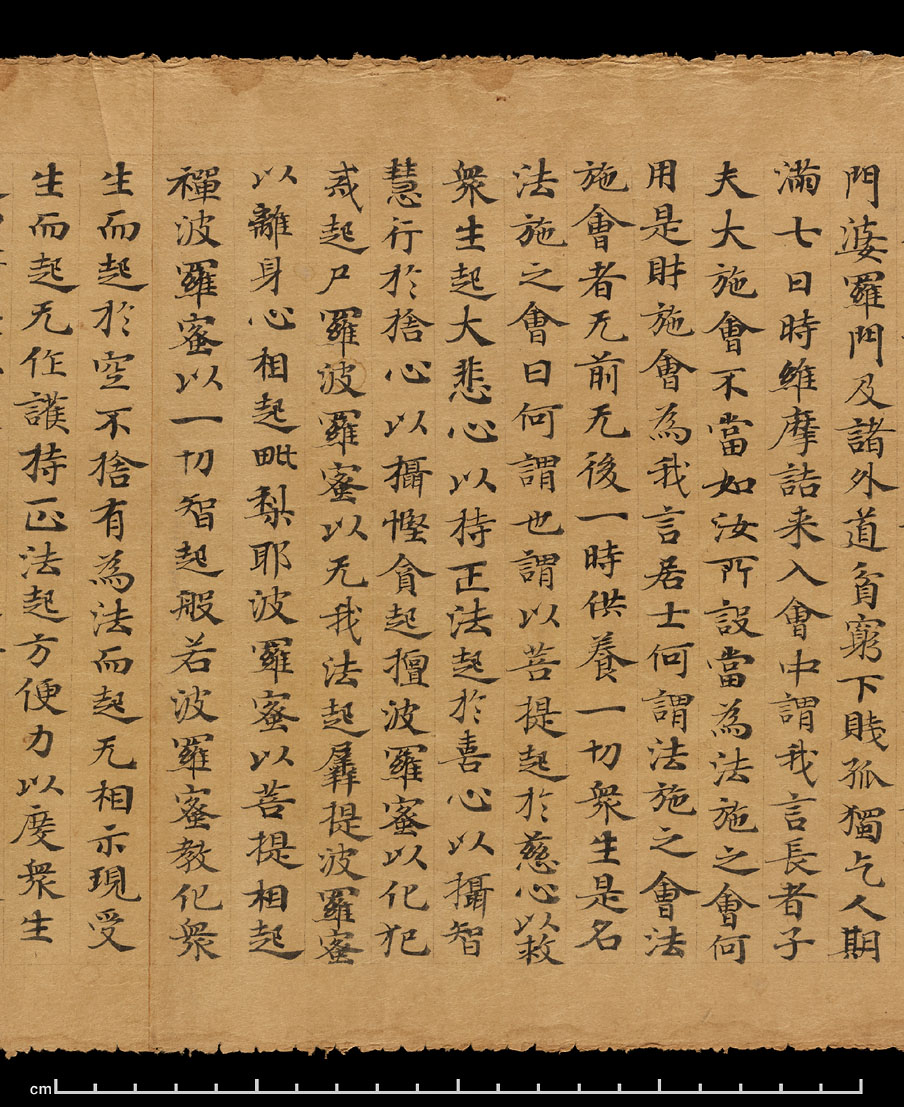 門婆羅門及諸外道貧窮下賎孤獨乞人期
滿七日時維摩詰来入會中謂我言長者子
夫大施會不當如汝所設當為法施之會何
用是財施會為我言居士何謂法施之會法
施會者无前无後一時供養一切衆生是名
法施之會曰何謂也謂以菩提起於慈心以救
衆生起大悲心以持正法起於喜心以攝智
慧行於捨心以攝慳貪起擅波羅蜜以化犯
戒起尸羅波羅蜜以无我法起羼提波羅蜜
以離身心相起毗梨耶波羅蜜以菩提相起
禪波羅蜜以一切智起般若波羅蜜教化衆
生而起於空不捨有為法而起无相示現受
生而起无作護持正法起方便力以度衆生
cm